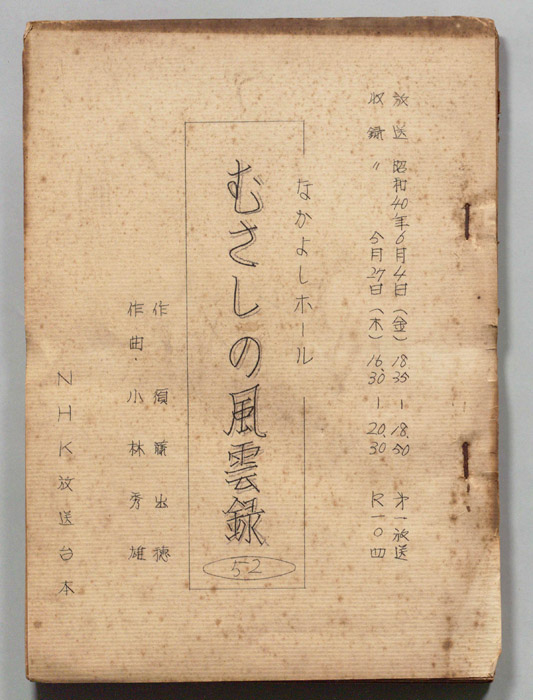 放送 昭和40年6月4日(金) 18.35―18.50 第一放送
収録 〃 5月27日(木) 16.30―20.30 R一〇四
なかよしホール
むさしの風雲録
52
作 須藤出穂
作曲・小林秀雄
NHK放送台本